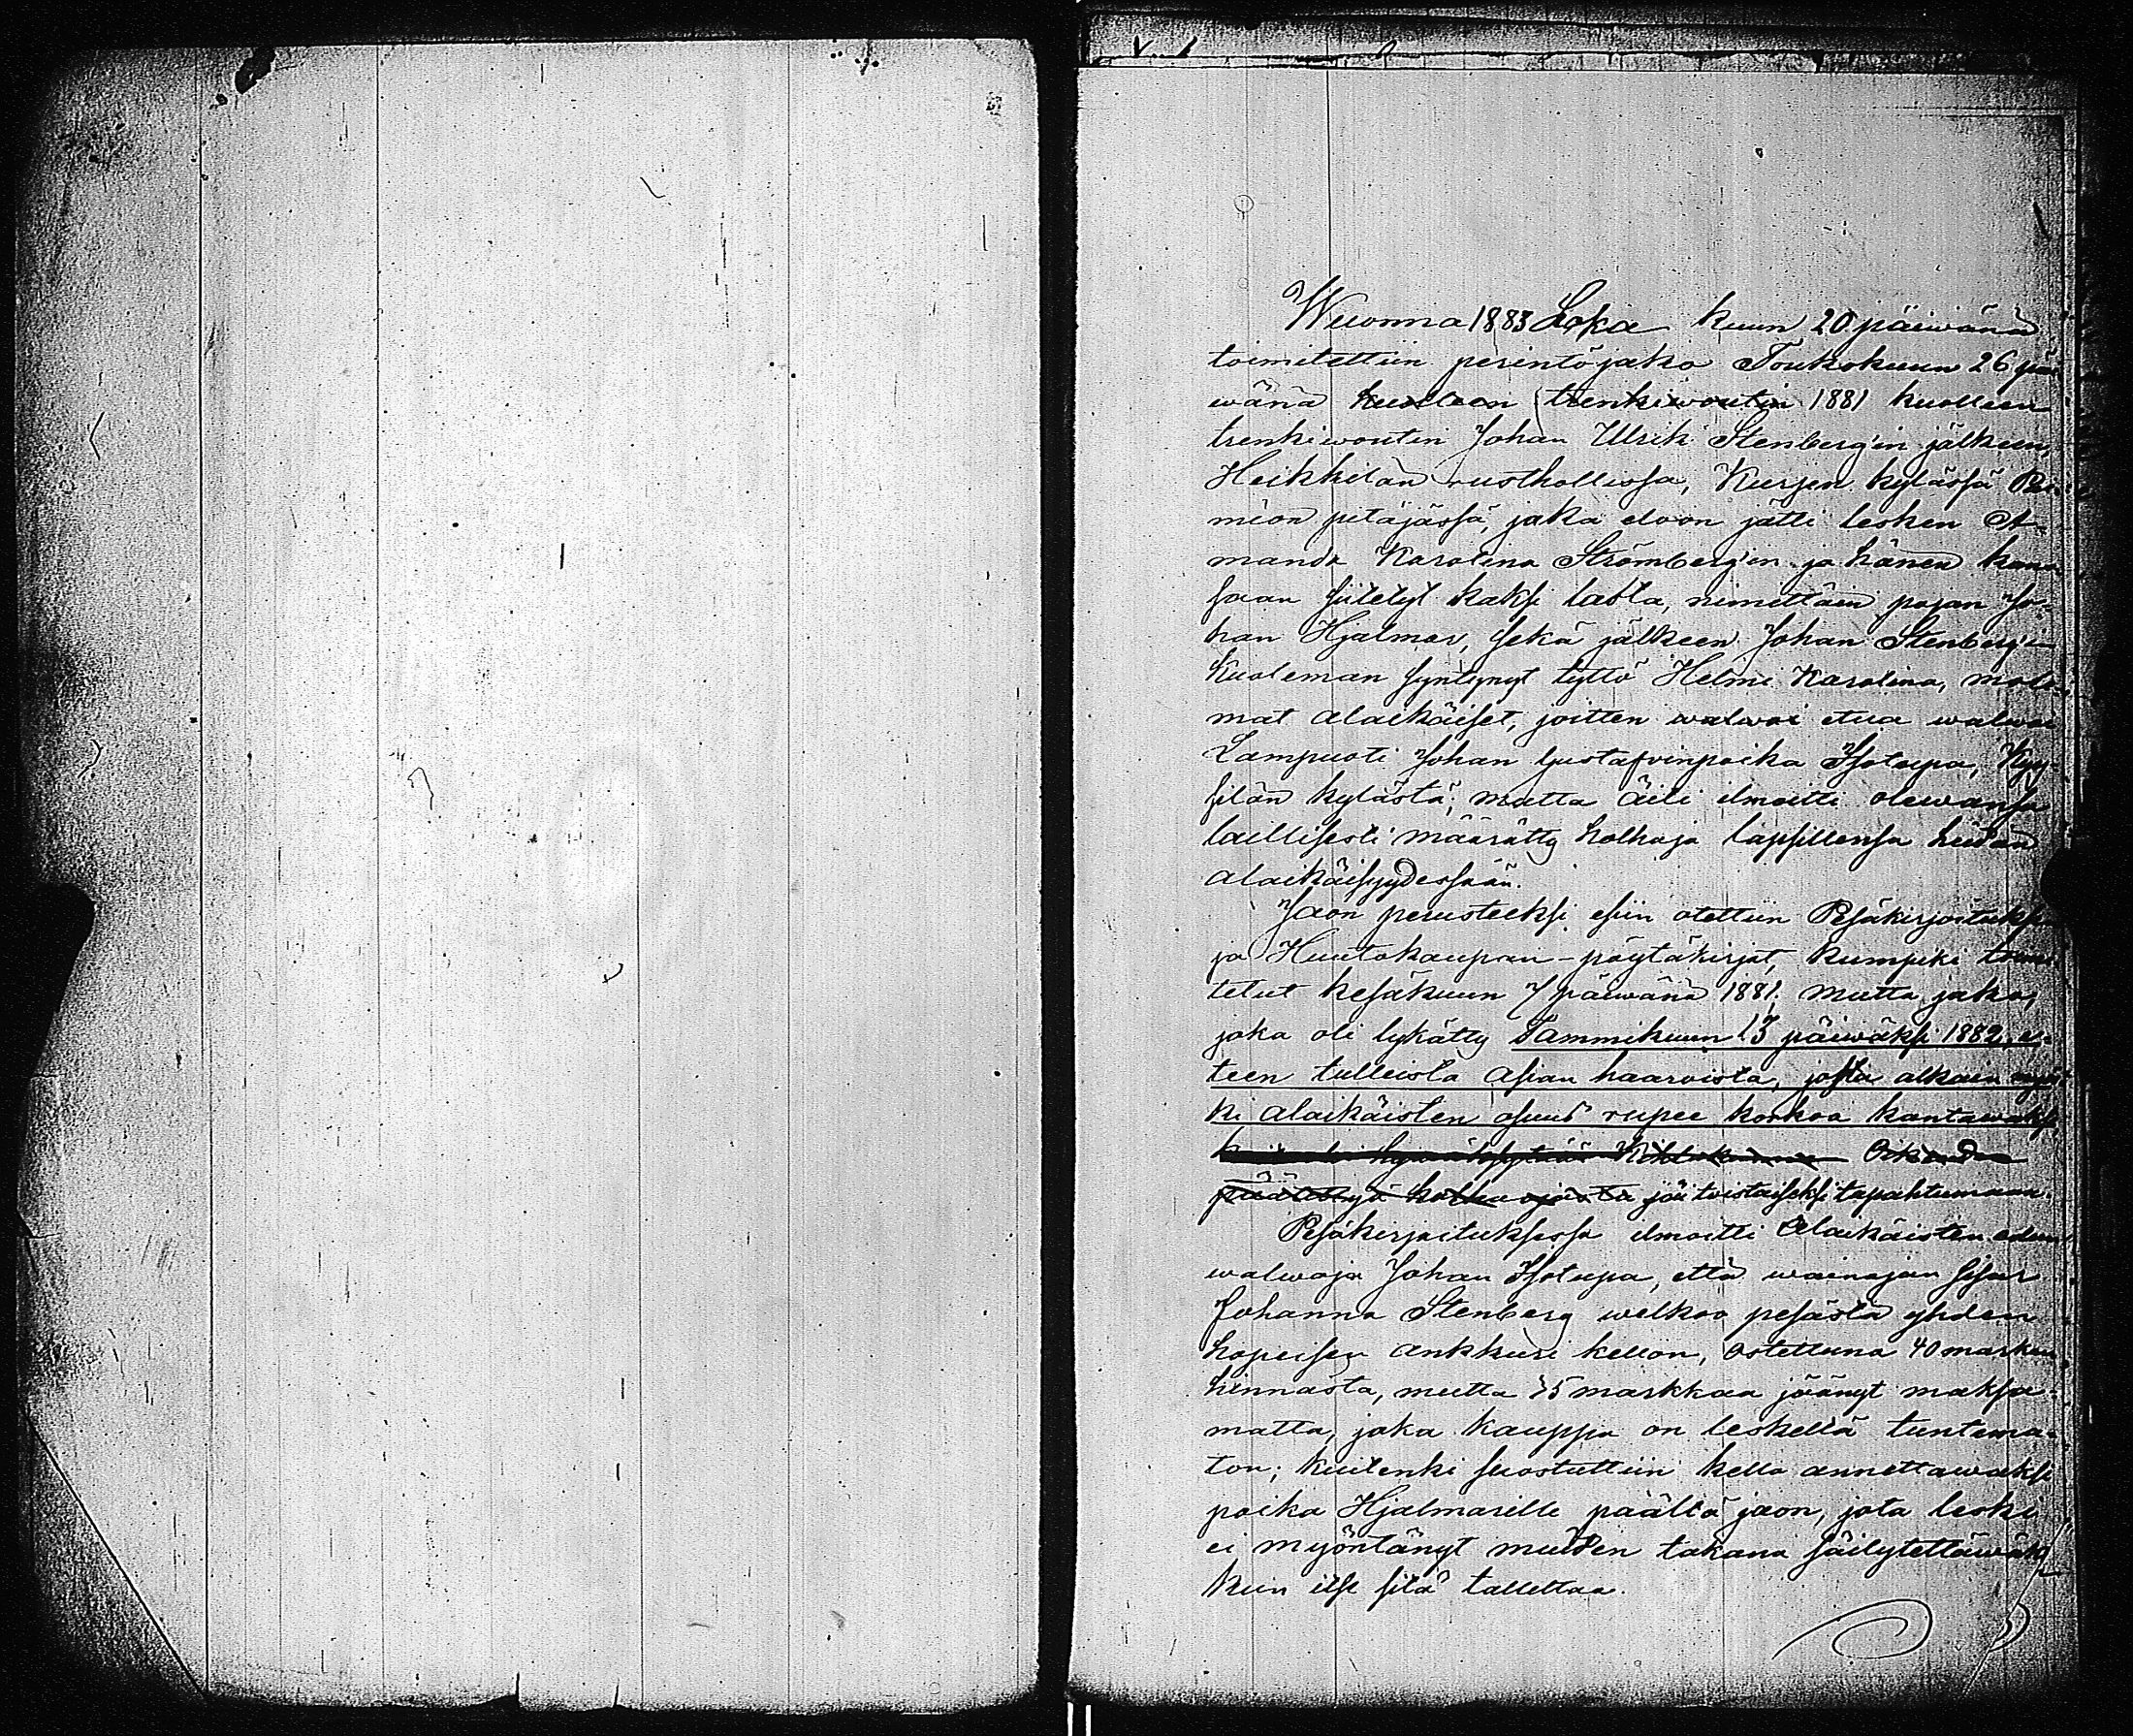 Wuonna 1883 Loka kuun 20 päiwänä
toimitettiin perintöjako Toukokuun 26 päi
wänä kuolleen trenkiwoutin 1881 kuolleen
trenkiwoutin Johan Ulrik Stenberg'in jälkeen,
Heikkilän rusthollissa, Kurjen kylässä
miön pitäjässä, joka eloon jätti lesken A-
manda Karolina Strömberg'in ja hänen kans
saan siitetyt kaksi lasta, nimittäin pojan Jo-
han Hjalmar, sekä jälkeen Johan Stenberg'i
kuoleman syntynyt tyttö Helmi Karolina, molem
mat alaikäiset, joitten walwoi etua walwoi
Lampuoti Johan Gustafvinpoika Isotupa, Kyy
silän kylästä; mutta äiti ilmoitti olewansa
laillisesti määrätty holhoja lapsillensa heidän
alaikäisyydessään.
Jaon perusteeksi esiin otettiin Pesäkirjoituksen
ja Huutokaupan-pöytäkirjat, kumpiki toimi
tetut kesäkuun 7 päiwänä 1881: mutta jako,
joka oli lykätty Tammikuun 13 päiwäksi 1882, e-
teen tulleista asian haaroista, josta alkaen myös
ki alaikäisten osuus rupee korkoa kantawaksi,
Oikeuden
päätöstyä holhoojasta jäi toistaiseksi tapahtumaan.
Pesäkirjoituksessa ilmoitti Alaikäisten edun
walwoja Johan Isotupa, että wainajan sisar
Johanna Stenberg welkoo pesästä yhden
hopeisen ankkuri kellon, ostettuna 40 markan
hinnasta, mutta 35 markkaa jäänyt maksa-
matta, joka kauppa on leskellä tuntema-
ton; kuitenki suostuttiin kello annettawaksi
poika Hjalmarille päältä jaon, jota leski
ei myöntänyt muiden takana säilytettäwäksi
kuin itse sitä tallettaa.